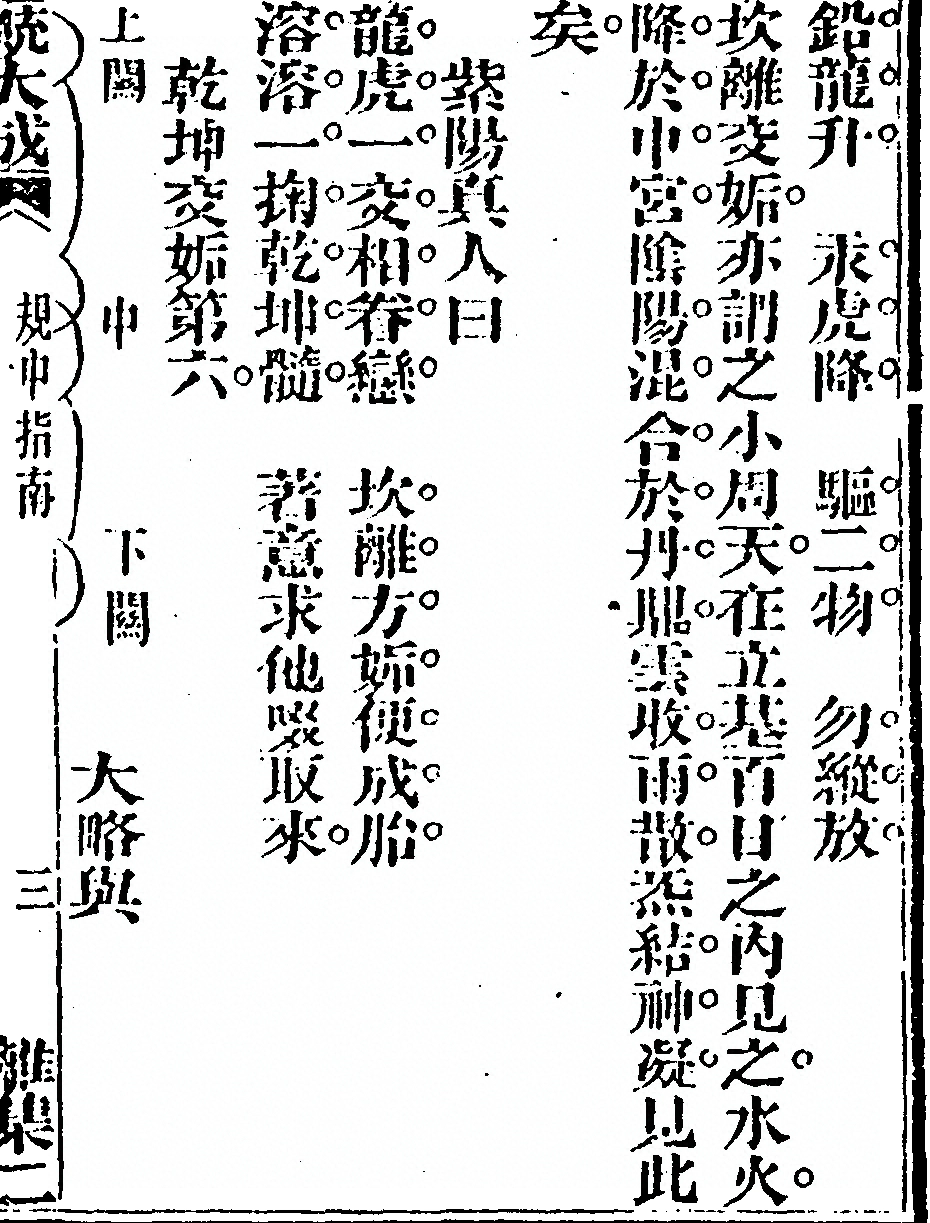 鉛龍升　汞虎降　驅二物　勿縱放
坎離交姤亦謂之小周天在立基百日之內見之水火
降於中宮陰陽混合於丹鼎雲收雨散炁結神凝見此
矣
紫陽真人曰
龍虎一交相眷戀　坎離方姤便成胎
溶溶一掬乾坤髓　著意求他啜取來
乾坤交姤第六
上關　中　下關　大略與
統大成　規中指南　三　離集二